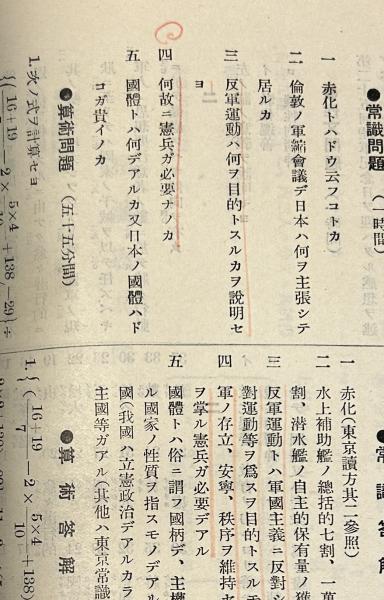 ●常識問題(一時間)
一 赤化トハドウ云フコトカ
二 倫敦ノ軍縮會議デ日本ハ何ヲ主張シテ
居ルカ
三 反軍運動ハ何ヲ目的トスルカヲ說明セ
ヨ
四 何故ニ憲兵ガ必要ナノカ
五 國體トハ何デアルカ又日本ノ國體ハド
コガ貴イノカ
●算術問題(五十五分間)
1. 次ノ式ヲ計算セヨ
16+19 − 2× 5×4 10 +138−29)}÷
●常識答解
一 赤化(東京讀方其二參照)
二 水上補助艦ノ總括的七割、一萬
割、潜水艦ノ自主的保有量ノ獲
三 反軍運動トハ軍國主義ニ反對シ
對運動等ヲ爲スヲ目的トスルモ
四 軍ノ存立、安寧、秩序ヲ維持セ
ヲ掌ル憲兵ガ必要デアル
五 國體トハ俗ニ謂フ國柄デ、主權
ル國家ノ性質ヲ指スモノデアル
國(我國ハ立憲政治デアルカラ
主國等ガアル(其他ハ東京常識
●算術答解
1. {( 16+19 7 2× 5×4 10 +138